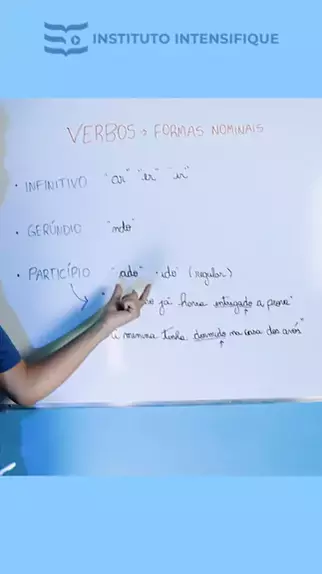 INSTITUTO INTENSIFIQUE
VERBOS → FORMAS NOMINAIS
• INFINITIVO "ar" "er" "ir"
• GERÚNDIO "ndo"
• PARTICÍPIO "ado" "ido" (regular)
já havia entregado a prova"
a menina tinha dormido na casa dos avós"